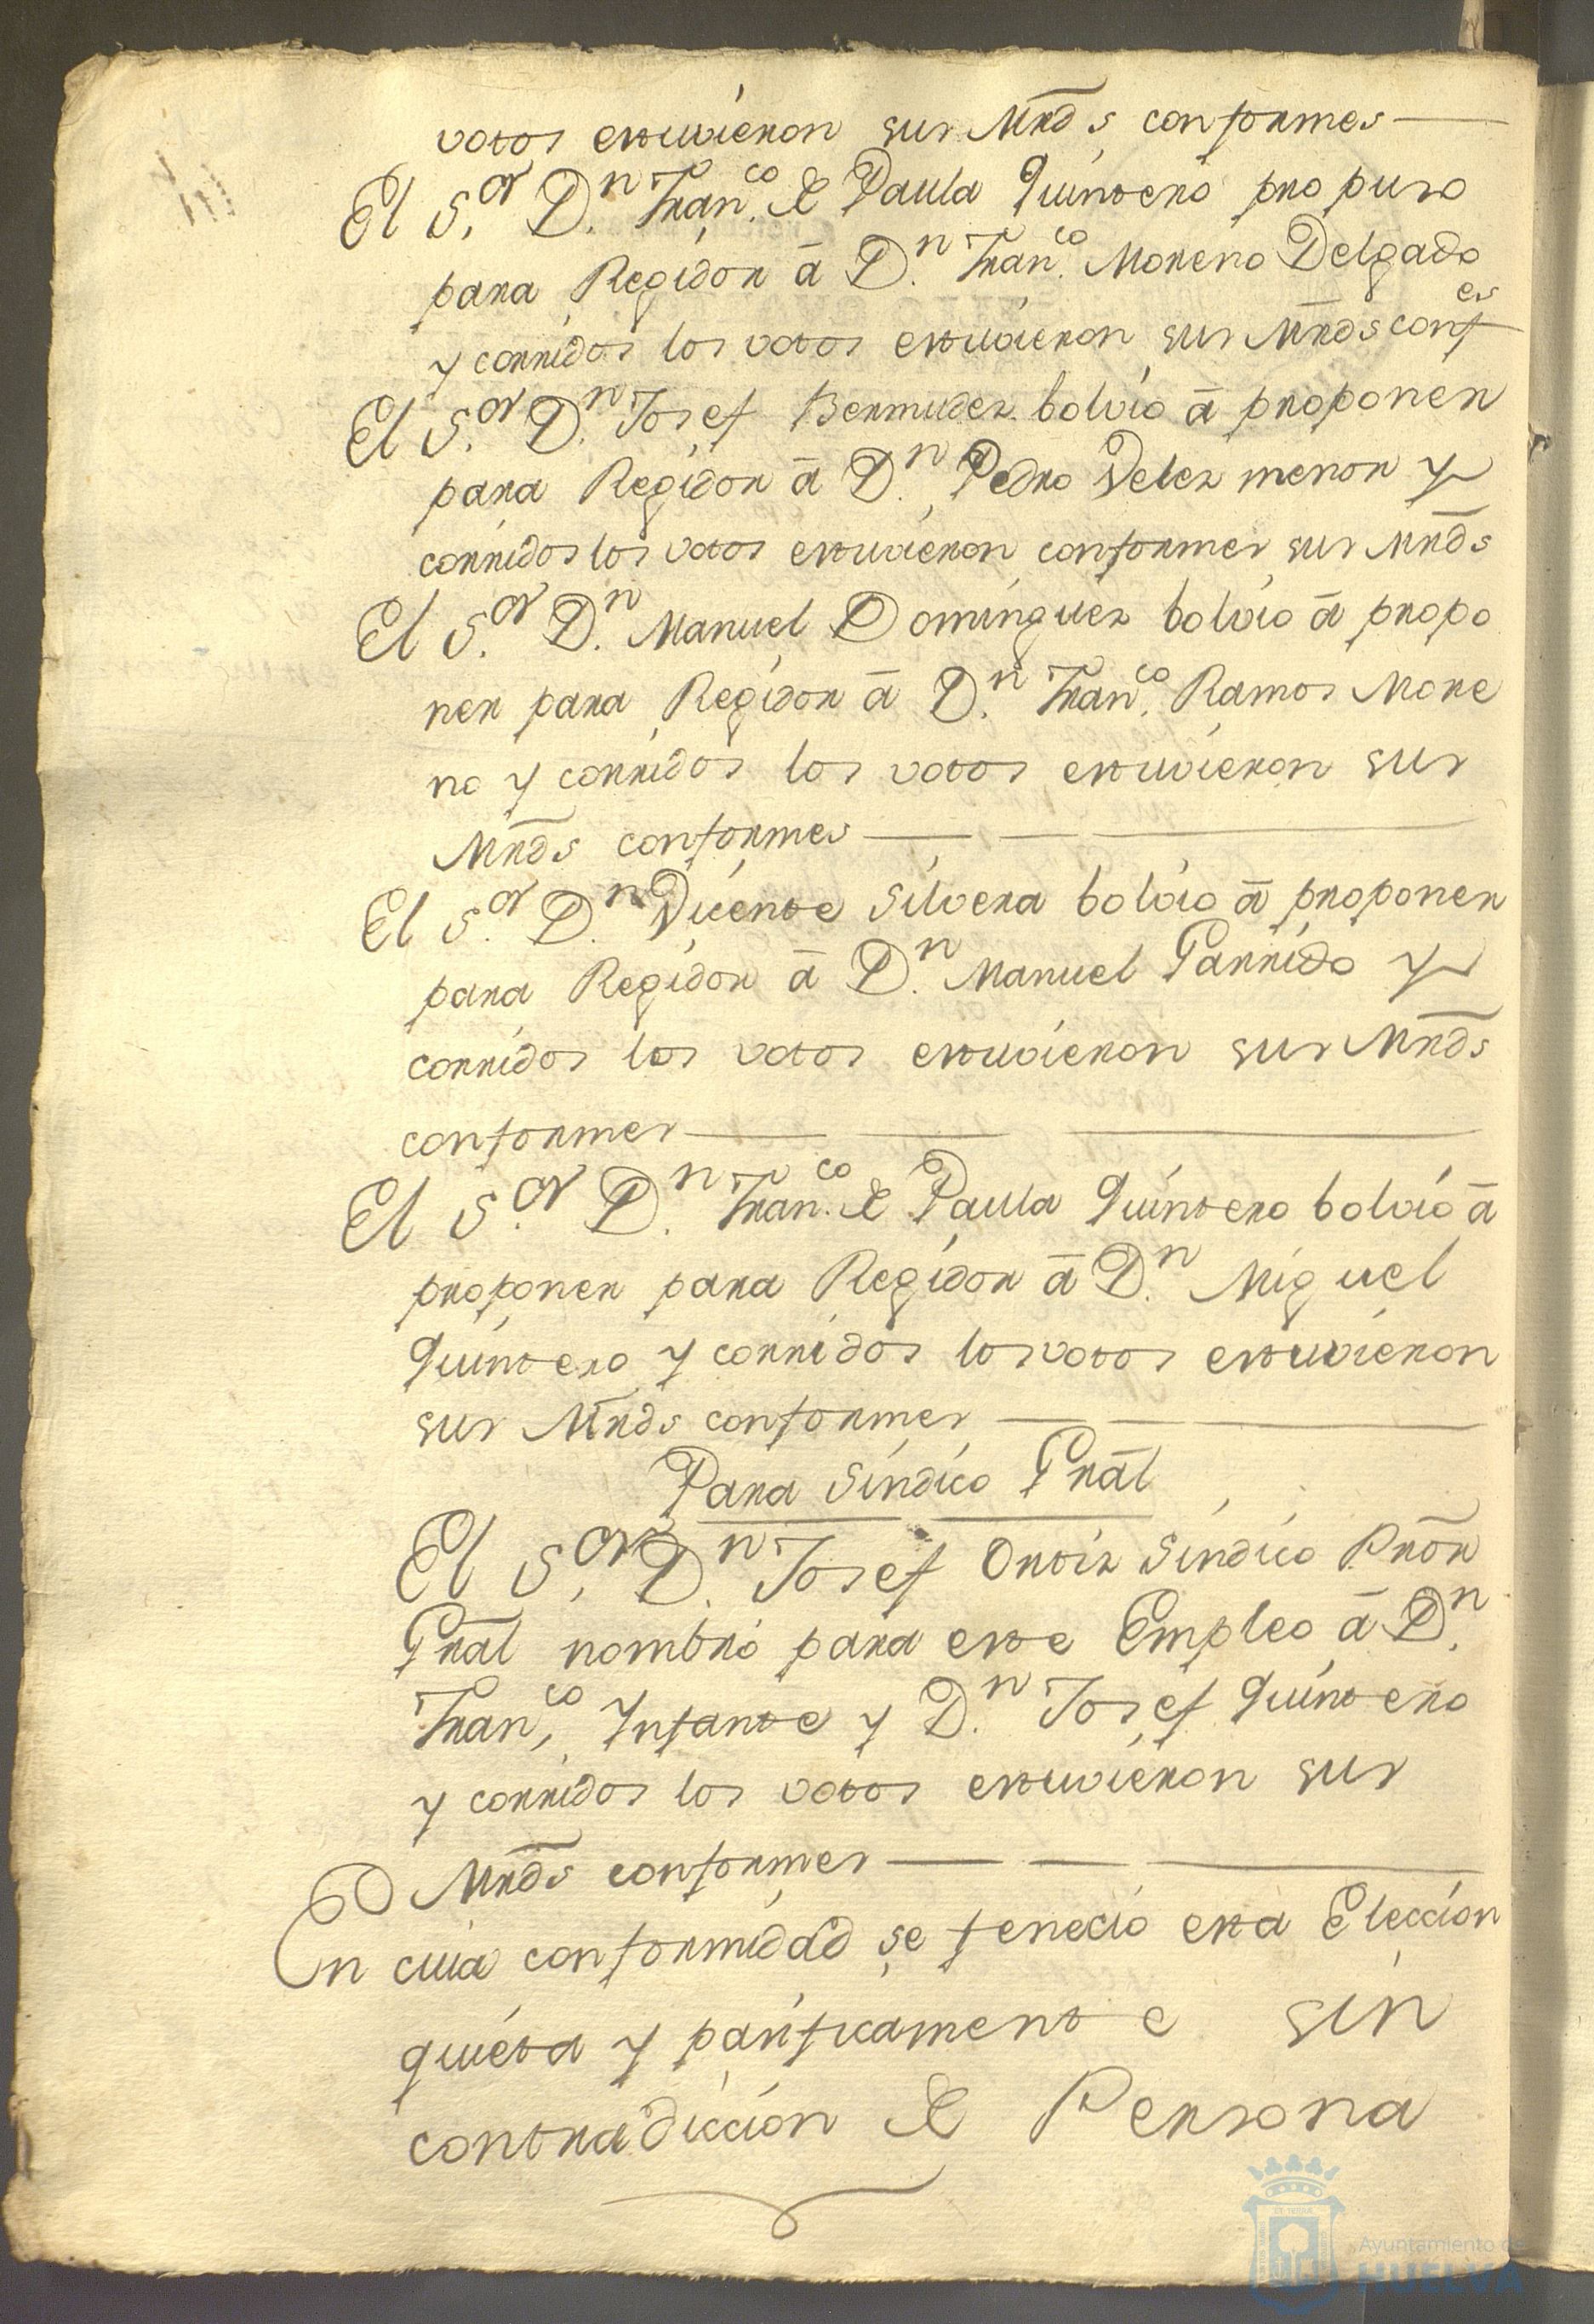 votos estuvieron sus Mrds conformes
El S.or D.n Fran.co de Paula Quintero propuso
para Regidor â D.n Fran.co Moreno Delgado
y corridos los votos estuvieron sus Mrds confes
El S.or D.n Josef Bermudez bolvio â proponer
para Regidor â D.n Pedro Velez menor y
corridos los votos estuvieron conformes sus Mrds
El S.or D.n Manuel Dominguez bolvio â propo
ner para Regidor â D.n Fran.co Ramos More
no y corridos los votos estuvieron sus
Mrds conformes
El S.or D.n Vicente Silvera bolvio â proponer
para Regidor â D.n Manuel Garrido y
corridos los votos estuvieron sus Mrds
conformes
El S.or D.n Fran.co de Paula Quintero bolvio â
proponer para Regidor â D.n Miguel
Quintero y corridos los votos estuvieron
sus Mrds conformes
Para Sindico Gral
El S.or D.n Josef Ortiz Sindico Pror
Gral nombró para este Empleo â D.n
Fran.co Ynfante y D.n Josef Quintero
y corridos los votos estuvieron sus
Mrds conformes
En cuia conformidad se fenecio esta Eleccion
quieta y pasificamente sin
contradiccion de Persona
Ayuntamiento de
HUELVA